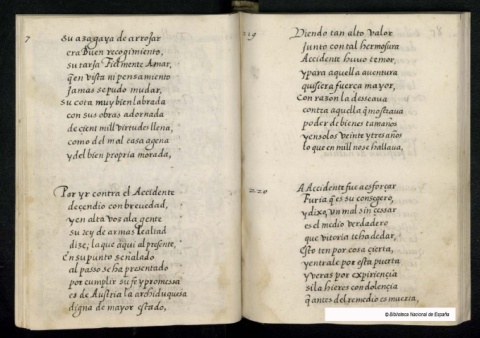 7
Su azagaya de arrojar
era buen recogimiento,
su tarja fielmente Amar,
q̃ en vista ni pensamiento
Jamas se pudo mudar,
Su cota muy bien labrada
con sus obras adornada
de cient mill virtudes llena,
como del mal casa agena
y del bien propria morada,
Por yr contra el Accidente
deçendio con brevedad,
y en alta vos a la gente
su rey de armas lealtad
dize; la que aqui al presente,
En su punto señalado
al passo se ha presentado
por cumplir su fe y promessa
es de Austria la archiduquesa
digna de mayor estado,
219
Viendo tan alto valor
Junto con tal hermosura
Accidente huvo temor,
y para aquella aventura
quisiera fuerca mayor,
Con razon la desseava
contra aquella q̃ mostrava
poder de bienes tamaños
y en solos veinte y tres años
lo que en mill nose hallava,
220
A Accidente fue a esforçar
Furia q̃ es su consegero,
y dixo, un mal sin çessar
es el medio verdadero
que vitoria te ha de dar,
Esto ten por cosa çierta,
y entrale por esta puerta
y veras por expiriençia
si la hieres con dolençia
q̃ antes del remedio es muerta,
© Biblioteca Nacional de España